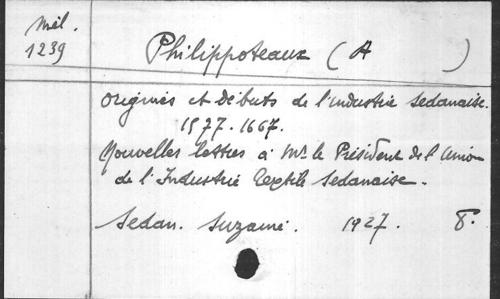 Mél.
1239
Philippoteaux (A )
Origines et Débuts de l'industrie Sedanaise.
1577-1667.
Nouvelles lettres à Mr le Président de l'Union
de l'Industrie Textile Sedanaise.
Sedan. Suzaine. 1927. 8.